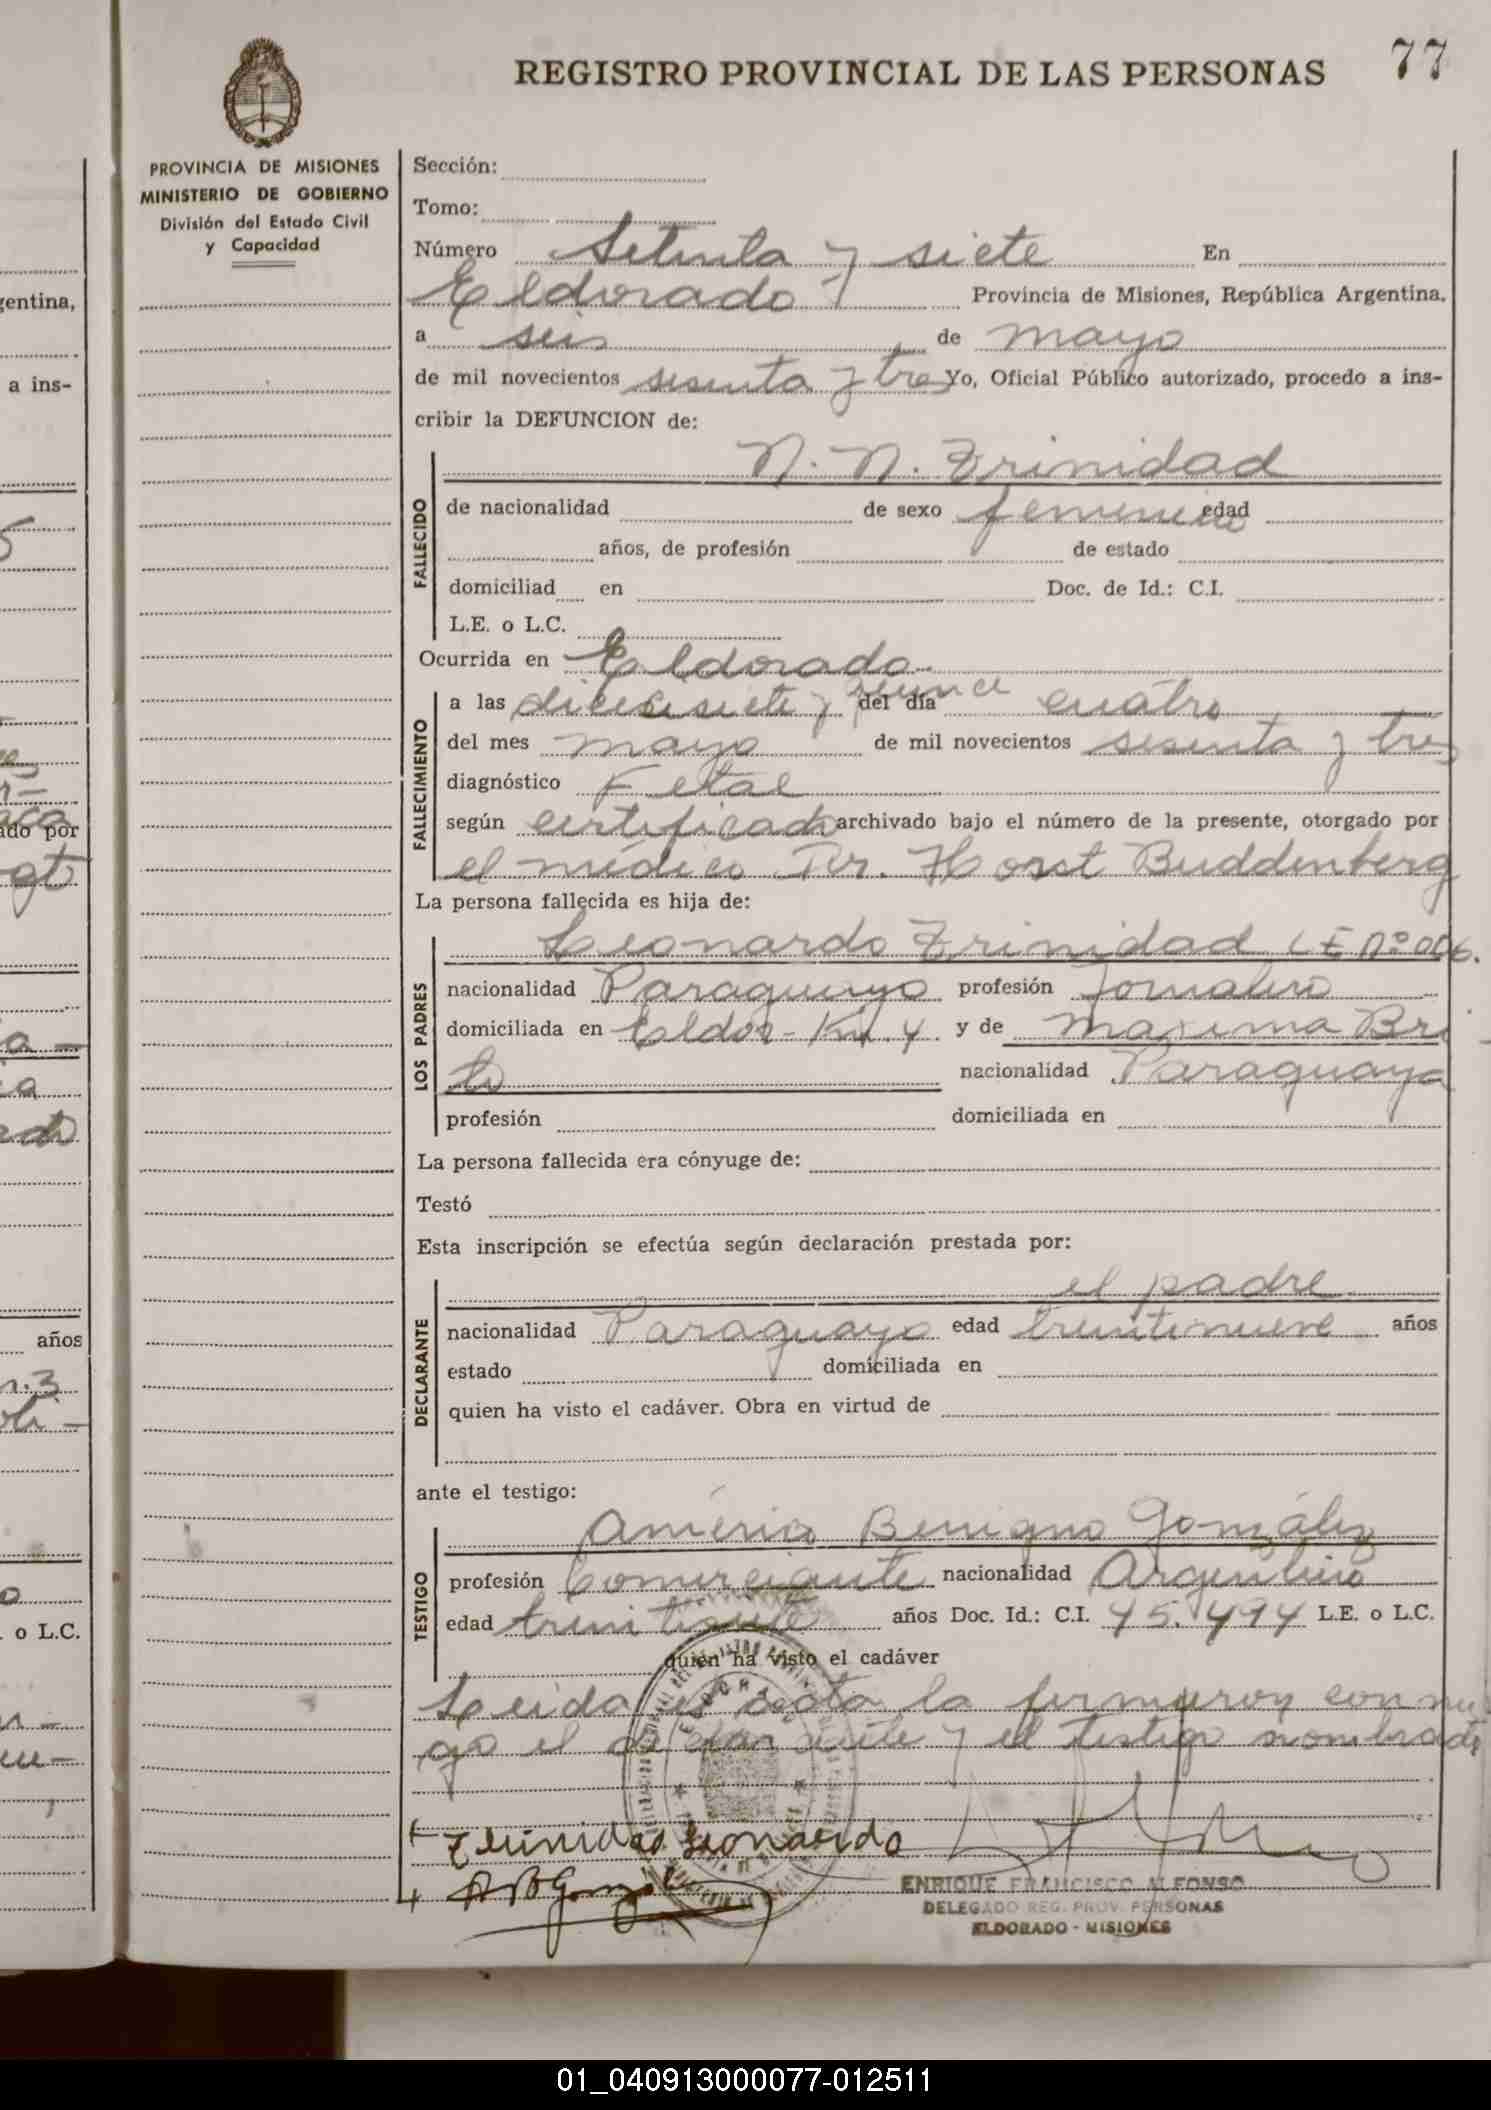 77
REGISTRO PROVINCIAL DE LAS PERSONAS
PROVINCIA DE MISIONES
MINISTERIO DE GOBIERNO
División del Estado Civil
y Capacidad
Sección:
Tomo:
Número Setenta y siete En
Eldorado Provincia de Misiones, República Argentina,
a seis de mayo
de mil novecientos sesenta y tres Yo, Oficial Público autorizado, procedo a ins-
cribir la DEFUNCION de:
N. N. Trinidad
FALLECIDO
de nacionalidad de sexo femenino edad
años, de profesión de estado
domiciliad en Doc. de Id.: C.I.
L.E. o L.C.
Ocurrida en Eldorado
FALLECIMIENTO
a las diecisiete y quince del día cuatro
del mes mayo de mil novecientos sesenta y tres
diagnóstico Fetal
según certificado archivado bajo el número de la presente, otorgado por
el médico Dr. Horst Buddenberg
La persona fallecida es hija de:
LOS PADRES
Leonardo Trinidad LE Nº 006.
nacionalidad Paraguayo profesión Jornalero
domiciliada en Eldor-Km. 4. y de Maxima Bri-
to nacionalidad Paraguaya
profesión domiciliada en
La persona fallecida era cónyuge de:
Testó
Esta inscripción se efectúa según declaración prestada por:
DECLARANTE
el padre
nacionalidad Paraguayo edad treintinueve años
estado domiciliada en
quien ha visto el cadáver. Obra en virtud de
ante el testigo:
TESTIGO
Américo Benigno González
profesión Comerciante nacionalidad Argentino
edad años Doc. Id.: C.I. 45.494 L.E. o L.C.
quien ha visto el cadáver
Leida el acta la firmaron conmi
go el declarante y el testigo nombrado
Trinidad Leonardo
ENRIQUE FRANCISCO ALFONSO
DELEGADO REG. PROV. PERSONAS
ELDORADO - MISIONES
01_040913000077-012511